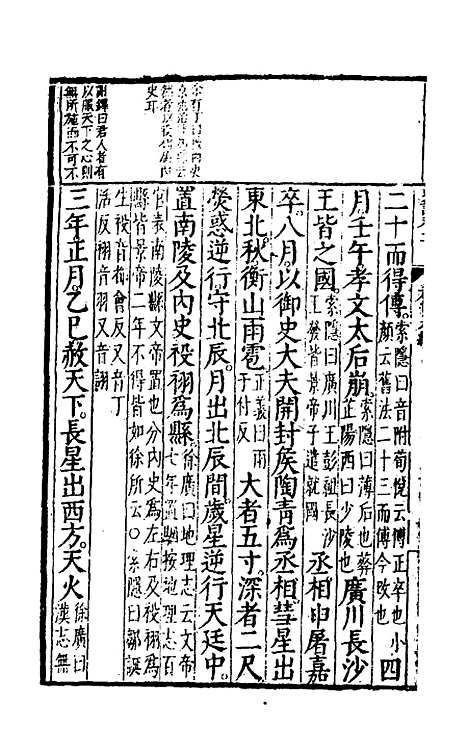 余有丁曰按内史
史耳
謝鐸曰君人者有
以服天下之心則
無所施而不可不
二十而得傳索隱曰音附荀悅云傅正卒也小
顏云舊法二十三而傅今改也四
月壬午孝文太后崩索隱曰薄后也葬
芷陽西曰少陵也廣川長沙
王皆之國索隱曰廣川王彭祖長沙
王發皆景帝子遣就國丞相申屠嘉
卒八月以御史大夫開封侯陶青爲丞相彗星出
東北秋衡山雨雹正義曰雨
于付反大者五寸深者二尺
熒惑逆行守北辰月出北辰間歲星逆行天廷中
置南陵及内史祋祤爲縣徐廣曰地理志云文帝
七年置駰按地理志百
官表南陵縣文帝置也分内史爲左右及祋祤爲
縣皆景帝二年不得皆如徐所云○索隱曰鄒誕
生祋音檜會反又音丁
活反祤音羽又音詡
三年正月乙巳赦天下長星出西方天火徐廣曰
漢志無